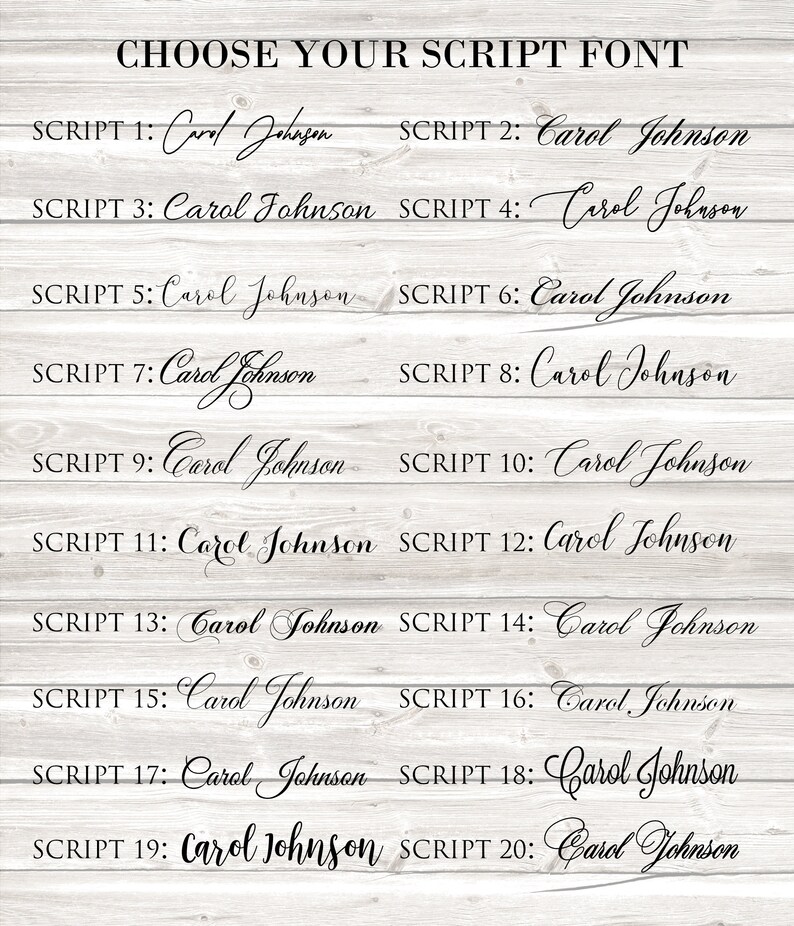 CHOOSE YOUR SCRIPT FONT
SCRIPT 1: Carol Johnson SCRIPT 2: Carol Johnson
SCRIPT 3: Carol Johnson SCRIPT 4: Carol Johnson
SCRIPT 5: Carol Johnson SCRIPT 6: Carol Johnson
SCRIPT 7: Carol Johnson SCRIPT 8: Carol Johnson
SCRIPT 9: Carol Johnson SCRIPT 10: Carol Johnson
SCRIPT 11: Carol Johnson SCRIPT 12: Carol Johnson
SCRIPT 13: Carol Johnson SCRIPT 14: Carol Johnson
SCRIPT 15: Carol Johnson SCRIPT 16: Carol Johnson
SCRIPT 17: Carol Johnson SCRIPT 18: Carol Johnson
SCRIPT 19: Carol Johnson SCRIPT 20: Carol Johnson